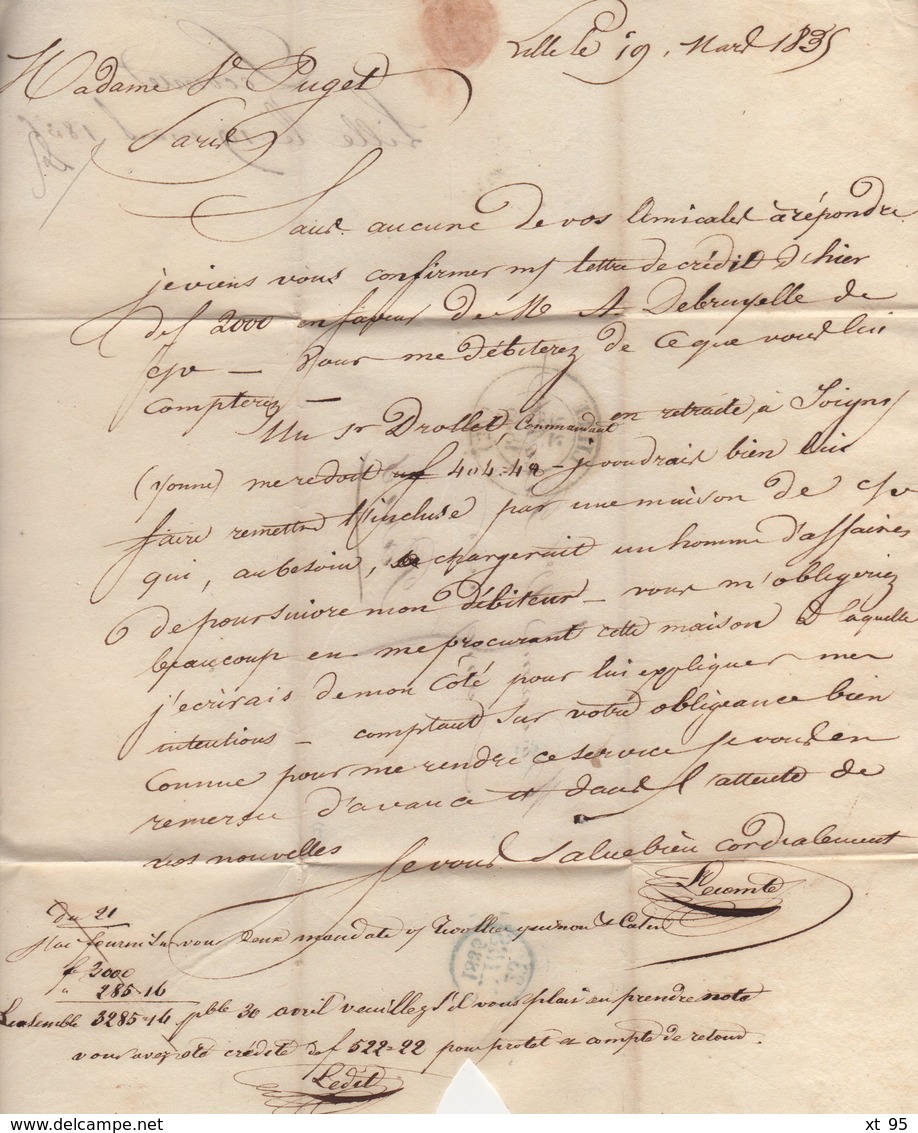 Lille le 19 Mars 1835
Madame Ve Puget
Paris
Sans aucune de vos amicales à répondre
je viens vous confirmer m/ lettre de crédit d'hier
de f 2000 en faveur de M A Debruyelle de
c/v — Vous me débiterez de ce que vous lui
compterez —
Un Sr Drollet Commandant en retraite à Joigny
(yonne) me redoit f 404=48 — je voudrais bien lui
faire remettre l'incluse par une maison de c/v
qui, au besoin, chargerait un homme d'affaires
de poursuivre mon débiteur — vous m'obligeriez
beaucoup en me procurant cette maison à laquelle
j'ecrirais de mon côté pour lui expliquer mes
intentions — comptant sur votre obligeance bien
connue pour me rendre ce service je vous en
remercie d'avance et dans l'attente de
vos nouvelles
Je vous salue bien cordialement
Lecomte
du 21
fourni sur vous deux mandats
f 2000
" 285-16
Ensemble 3285=14 pble 30 avril veuillez s'il vous plai en prendre note
vous avez été crédité de f 522=22 pour protet & compte de retour.
Ledit
xt 95